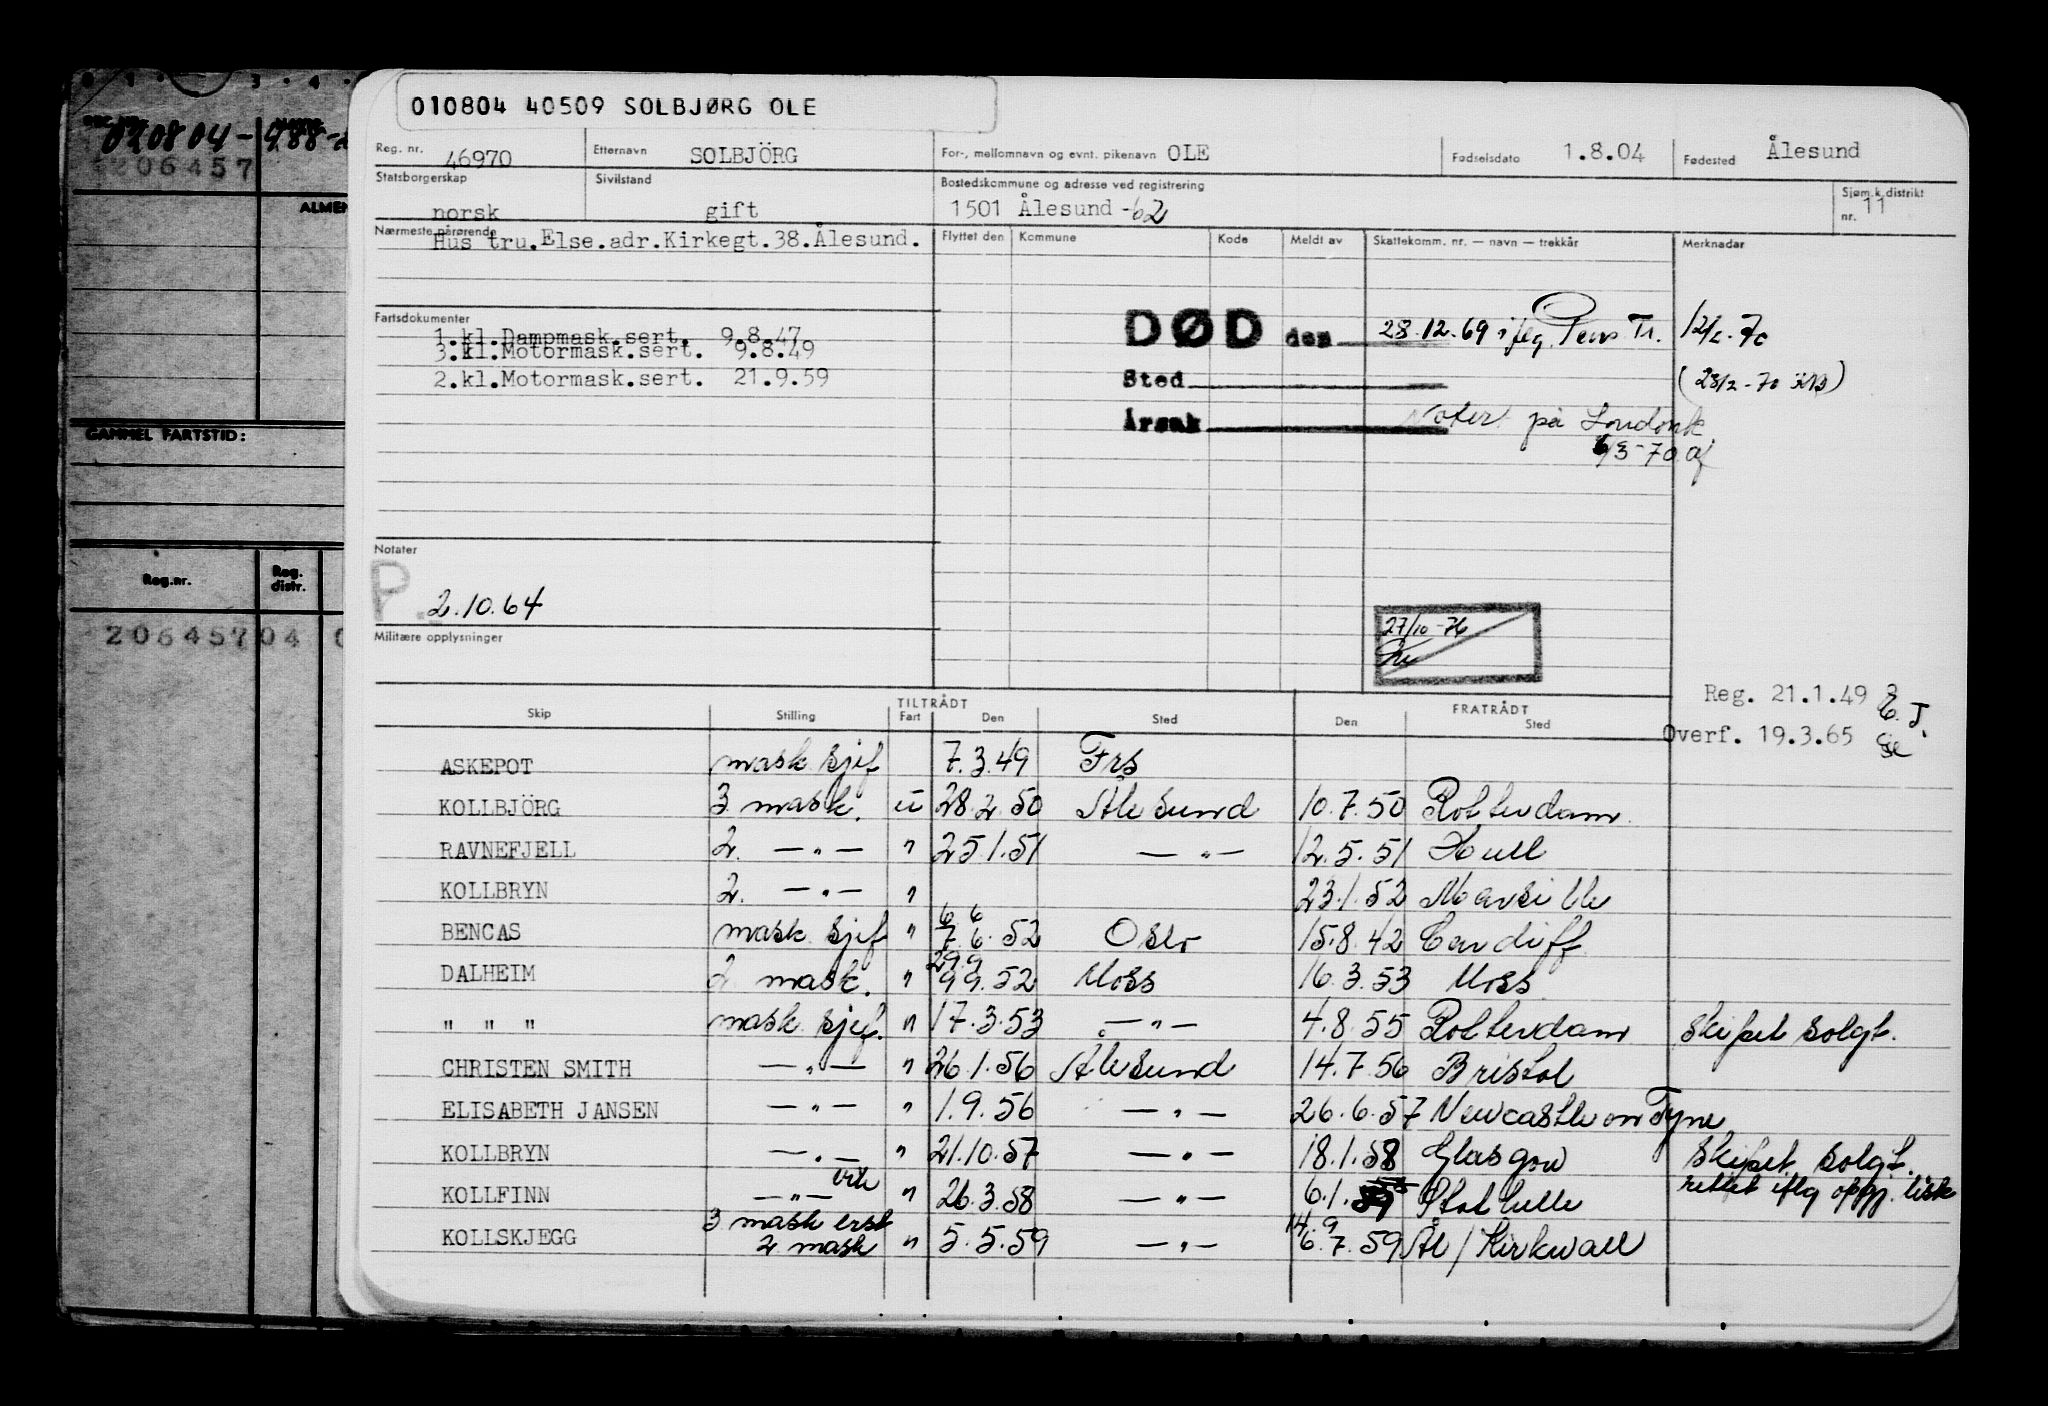 010804 40509 SOLBJØRG OLE
020804-
206457
ALMEN
GAMMEL FARTSTID:
Reg.nr. Reg. distr.
206457 04
Reg. nr. 46970 Etternavn SOLBJÖRG For-, mellomnavn og evnt. pikenavn OLE Fødselsdato 1.8.04 Fødested Ålesund
Statsborgerskap norsk Sivilstand gift Bostedskommune og adresse ved registrering 1501 Ålesund -62 Sjøm.k.distrikt nr. 11
Nærmeste pårørende Hus tru.Else.adr.Kirkegt.38.Ålesund.
Flyttet den Kommune Kode Meldt av Skattekomm. nr. — navn — trekkår Merknader
Fartsdokumenter
1.kl.Dampmask.sert. 9.8.47
3.kl.Motormask.sert. 9.8.49
2.kl.Motormask.sert. 21.9.59
DØD den 28.12.69 iflg. Pens Tr. 12/2-70
Sted (23/2-70 KB)
Årsak Notert på Londonk
6/3-70
Notater
P. 2.10.64
27/10-76
Militære opplysninger
Reg. 21.1.49
Overf. 19.3.65
Skip Stilling TILTRÅDT Fart Den Sted FRATRÅDT Den Sted
ASKEPOT mask sjef 7.3.49 Frs
KOLLBJÖRG 3 mask. u 28.2.50 Ålesund 10.7.50 Rotterdam
RAVNEFJELL 2. —"— " 25.1.51 —"— 12.5.51 Hull
KOLLBRYN 2. —"— " 23.1.52 Marseille
BENCAS mask sjef " 6 6 7.6.52 Oslo 15.8.42 Cardiff
DALHEIM 2 mask. " 29.9 99.52 Moss 16.3.53 Moss
" " " mask sjef. " 17.3.53 —"— 4.8.55 Rotterdam Skipet solgt.
CHRISTEN SMITH —"— " 26.1.56 Ålesund 14.7.56 Bristol
ELISABETH JANSEN —"— " 1.9.56 —"— 26.6.57 Newcastle on Tyne
KOLLBRYN —"— " 21.10.57 —"— 18.1.58 Glasgow Skipet solgt.
KOLLFINN —"— vik " 26.3.58 —"— 6.1.59 Stathelle rettet iflg oppg. lisk
KOLLSKJEGG 3 mask erst 2 mask " 5.5.59 —"— 14.9 6.7.59 Ål / Kirkwall